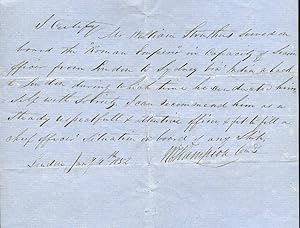 I Certify Mr William Stonehus served on
board the "Roman Emperor" in Capacity of Second
officer from London to Sydney via India & back
to London during which time he conducted him
self with Sobriety I can recommend him as a
Steady respectfull & attentive officer & fit to fill a
chief officers situation on board any Ship
London Jany 9th 1852